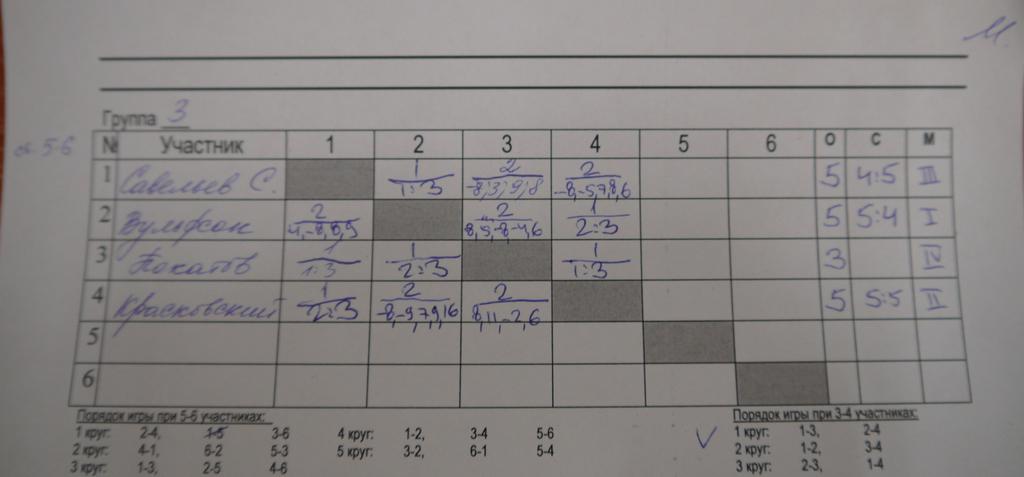 Группа 3
ст. 5-6
№ Участник 1 2 3 4 5 6 О С М
1 Савельев С. 1 2 2 5 4:5 III
1:3 -8,3,9,8 -8,-5,7,8,6
2 Вульфсон 2 2 1 5 5:4 I
4,-8,8,9 8,9,-8-4,6 2:3
3 Покатов 1 1 1 3 IV
1:3 2:3 1:3
4 Красковский 1 2 2 5 5:5 II
2:3 -8,-9,7,9,16 8,11,-2,6
5
6
Порядок игры при 5-6 участниках:
1 круг: 2-4, 1-5 3-6 4 круг: 1-2, 3-4 5-6
2 круг: 4-1, 6-2 5-3 5 круг: 3-2, 6-1 5-4
3 круг: 1-3, 2-5 4-6
Порядок игры при 3-4 участниках:
1 круг: 1-3, 2-4
2 круг: 1-2, 3-4
3 круг: 2-3, 1-4